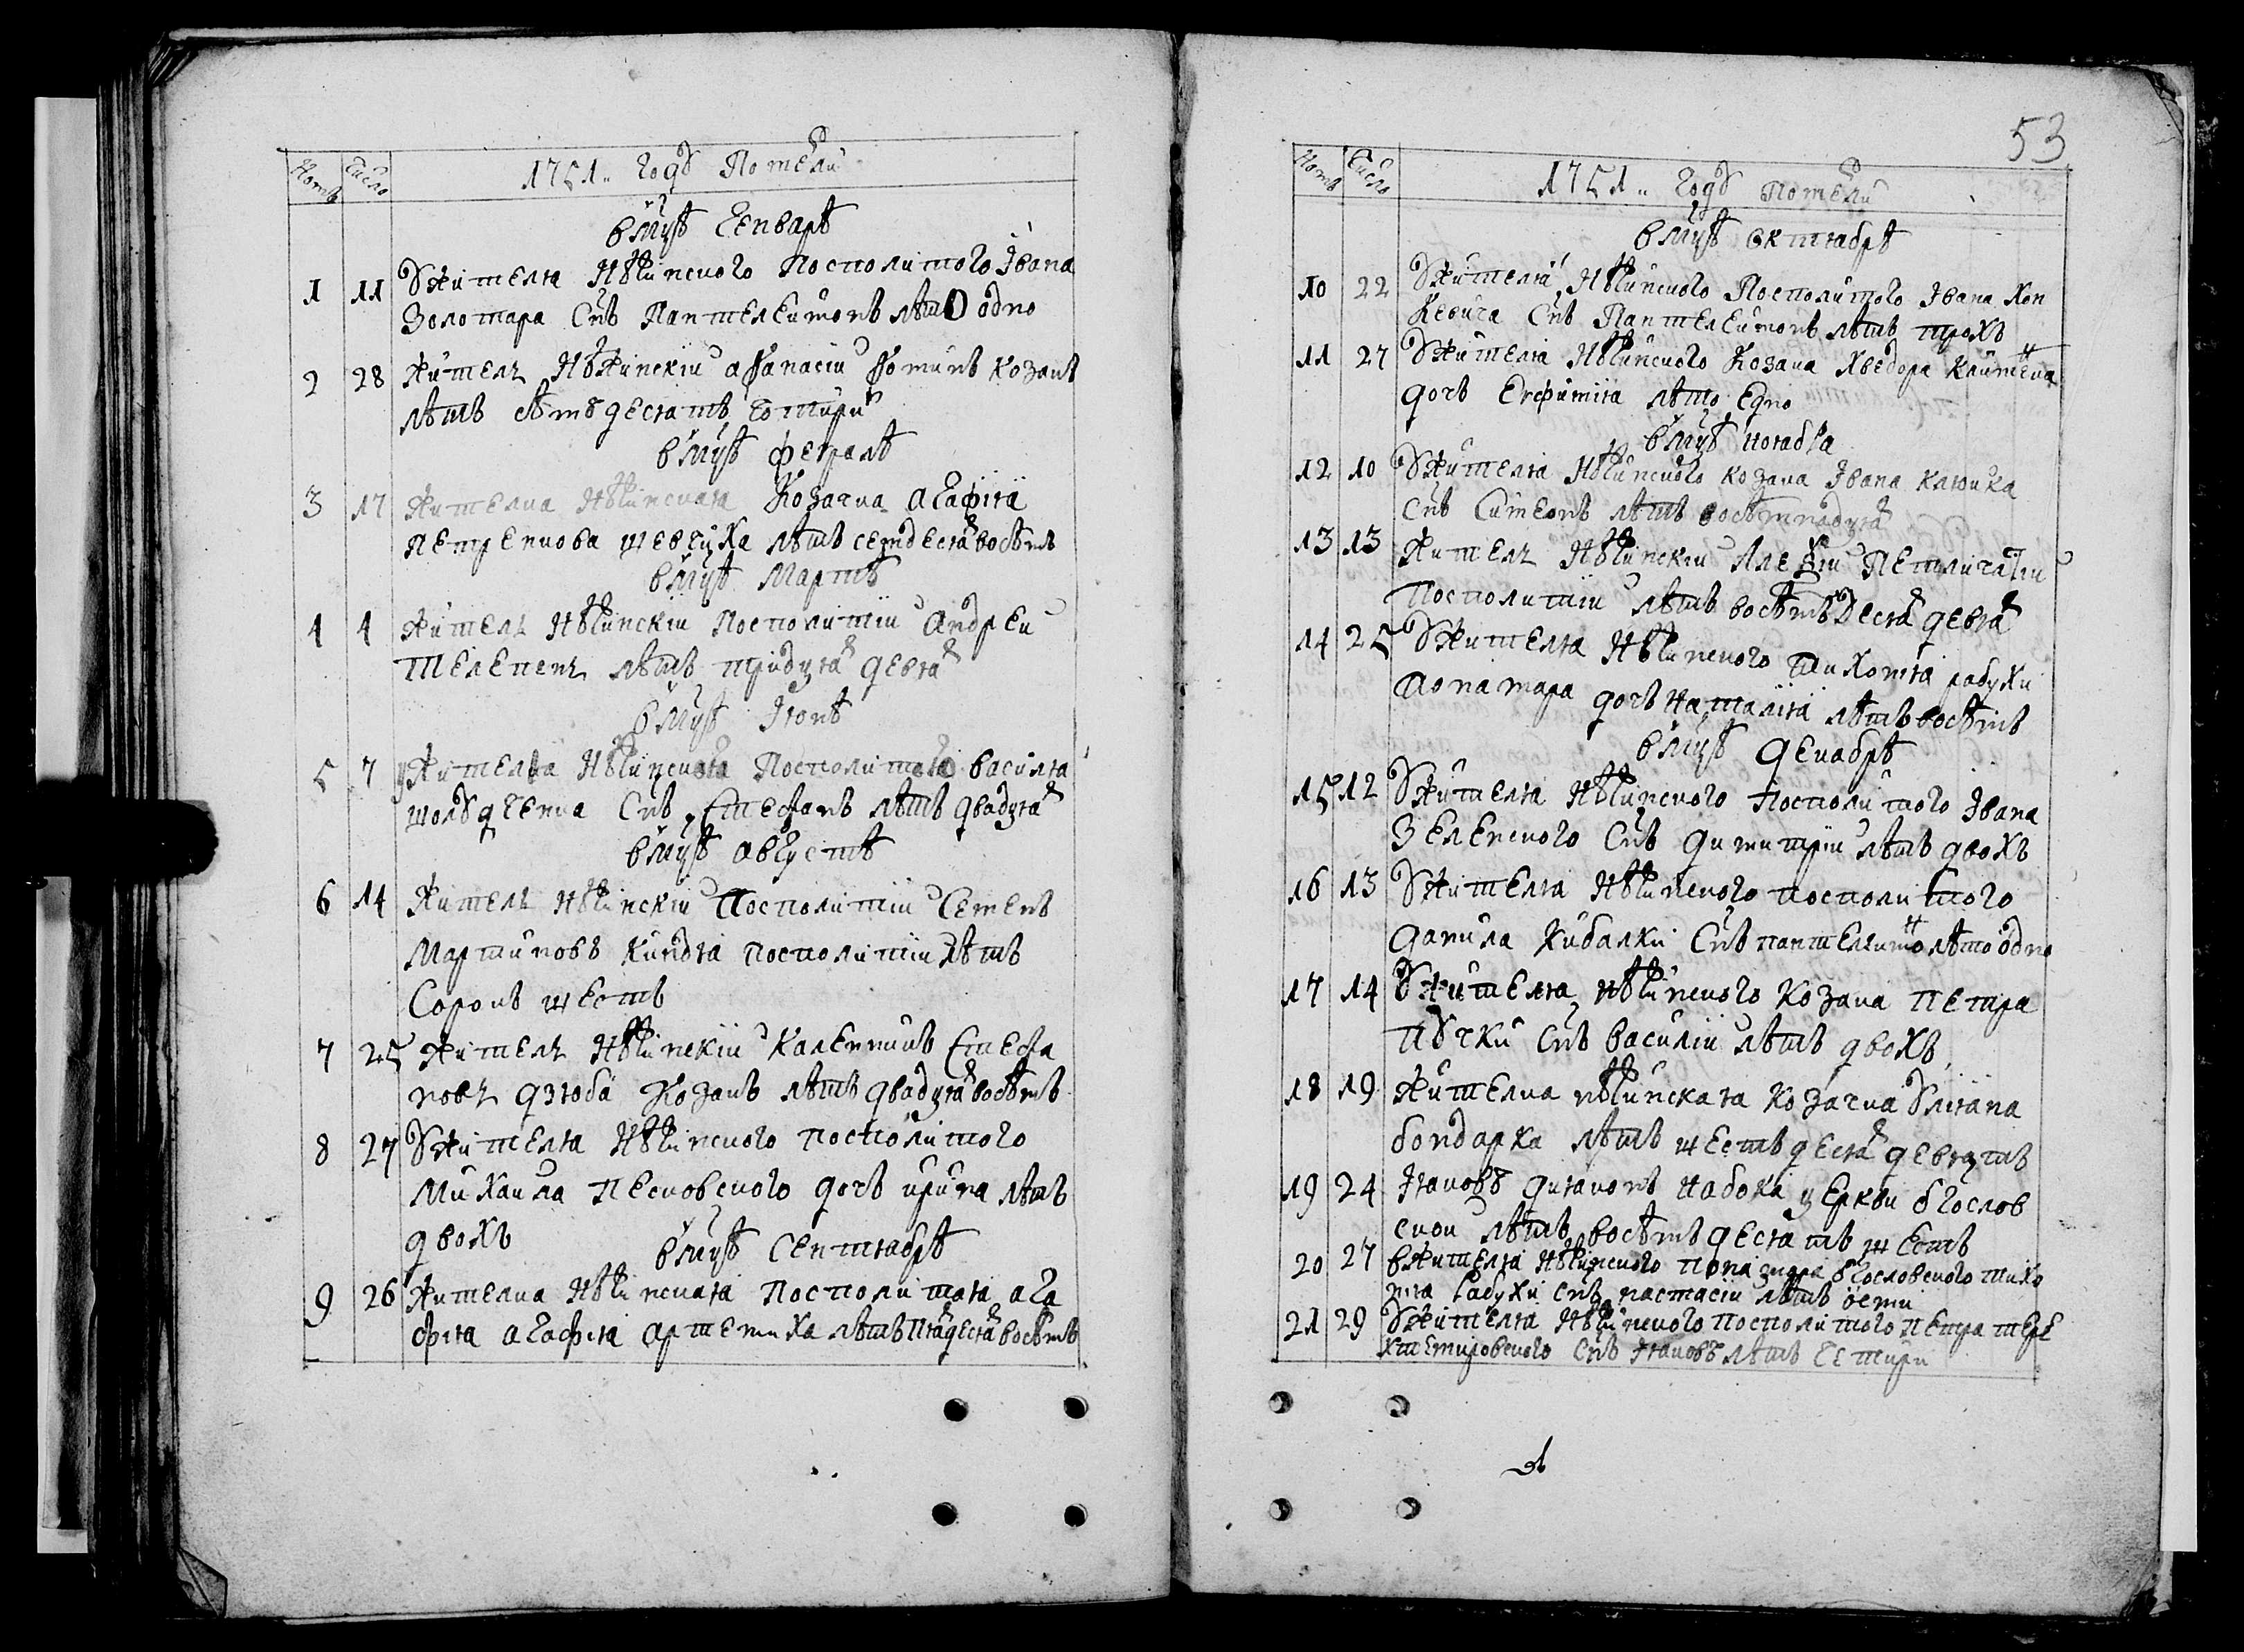 Номѣ Число 1751 „ годꙋ Помѣрли
в мц҃ѣ Генварѣ
1 11 Ꙋ жителя Нѣжинского Посполитого Івана
Золотара Сн҃ъ Пантелеимонъ лѣтъ одно
2 28 житель Нѣжинскіи аѳанасіи Ѳоминъ козакъ
лѣтъ сѣмъдесятъ чотири
в мц҃ѣ февралѣ
3 17 жителка Нѣжинская Козачка агафія
Петренкова шевчиха лѣтъ семдесят восѣмъ
в мц҃ѣ Мартѣ
4 4 житель Нѣжинскіи Посполитіи андреи
Телепень лѣтъ тридцят девят
в мц҃ѣ Іюнѣ
5 7 Ꙋ жителя Нѣжинского Посполитого василя
шолꙋдченка Сн҃ъ Стефанъ лѣтъ двадцят
в мц҃ѣ августѣ
6 14 житель Нѣжинскіи Посполитіи Семенъ
Мартиновъ Киндя посполитіи лѣтъ
Сорокъ шесть
7 25 житель Нѣжинскіи Каленикъ Стефа
новъ дзюба Козакъ лѣтъ двадцят восѣмъ
8 27 Ꙋ жителя Нѣжинского посполитого
Михаила Песковского дочъ ирина лѣтъ
двохъ
в мц҃ѣ Септябрѣ
9 26 жителка Нѣжинская Посполитая ага
фія агафия артемиха лѣтъ пядесят восѣмъ
53
Номѣ Число 1751 „ годꙋ помѣрли
в мц҃ѣ октябрѣ
10 22 Ꙋ жителя Нѣжинского Посполитого Івана Хоп
кевича Сн҃ъ Пантелеимонъ лѣтъ трохъ
11 27 Ꙋ жителя Нѣжинского Козака Хведора
дочъ Евфимія лѣто едно
в мц҃ѣ ноябра
12 10 Ꙋ жителя Нѣжинского козака Івана Клюйка
Сн҃ъ Симеонъ лѣтъ восѣмнадцят
13 13 житель Нѣжинскіи Алеѯіи
Посполитіи лѣтъ восѣмъдесят девят
14 25 Ꙋ жителя Нѣжинского Тихонія рабухи
Понамара дочъ Наталія лѣтъ восѣмъ
в мц҃ѣ декабрѣ
15 12 Ꙋ жителя Нѣжинского Посполитого Івана
Зеленского Сн҃ъ димитріи лѣтъ двохъ
16 13 Ꙋ жителя Нѣжинского посполитого
данила Кибалки Сн҃ъ пантелимон лѣто одно
17 14 Ꙋ жителя Нѣжинского козака петра
Пꙋчки Сн҃ъ василіи лѣтъ двохъ
18 19 жителка нѣжинская козачка Ꙋліяна
бондарка лѣтъ шестъдесят девятъ
19 24 Іяковъ дияконъ Набока церкви бг҃ослов
скои лѣтъ восѣмъдесятъ шесть
20 27 в жителя Нѣжинского понамара бг҃ословского тихо
нія рабухи Сн҃ъ настасіи лѣтъ осми
21 29 Ꙋ жителя Нѣжинского посполитого петра тере
хтемировского Сн҃ъ Іяковъ лѣтъ четири